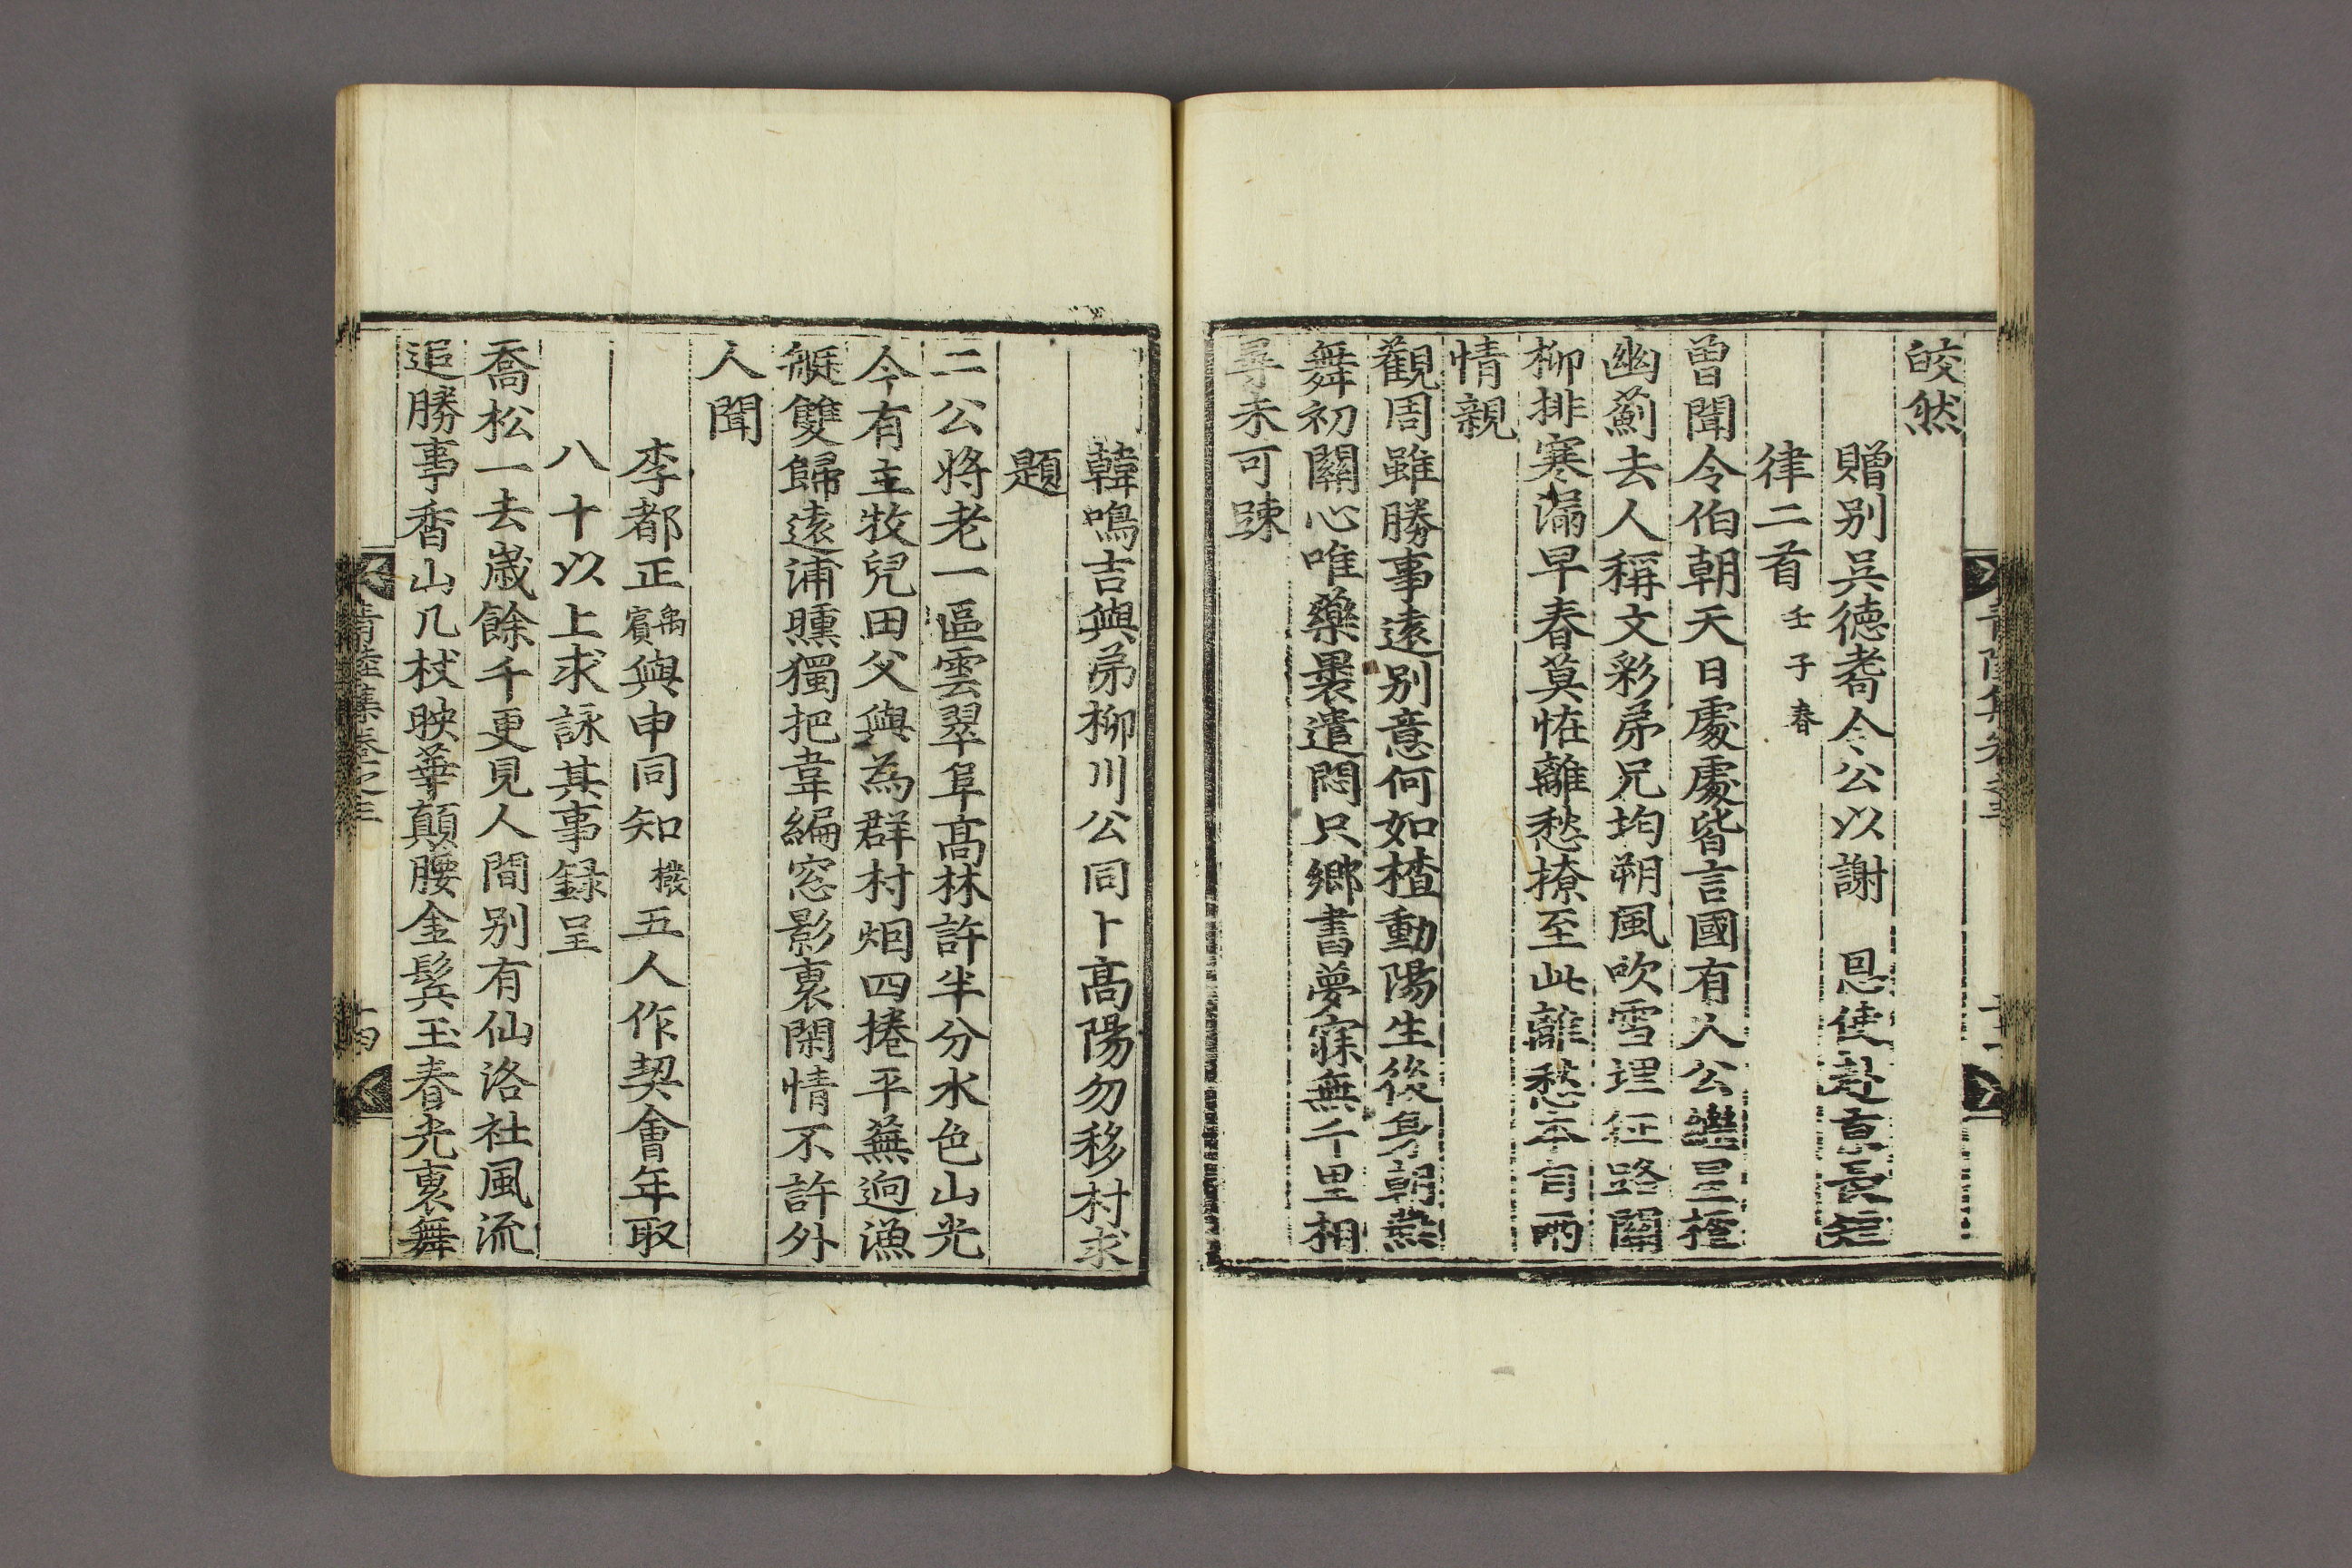 皎然
贈别吳德耉令公以謝 恩使赴京長短
律二首壬子春
曾聞令伯朝天日處處皆言國有人公繼三槎
幽薊去人稱文彩弟兄均朔風吹雪埋征路關
柳排寒漏早春莫恠離愁撩至此離愁本自兩
情親
觀周雖勝事遠别意何如楂動陽生後身朝燕
舞初關心唯藥裹遣悶只鄉書夢寐無千里相
尋未可踈
韓鳴吉與弟柳川公同卜高陽勿移村求
題
二公將老一區雲翠阜高林許半分水色山光
今有主牧兒田父與為群村烟四捲平蕪逈漁
艇雙歸遠浦曛獨把韋編窓影裏閑情不許外
人聞
李都正禹賓與申同知橃五人作契會年取
八十以上求詠其事録呈
喬松一去歲餘千更見人間别有仙洛社風流
追勝事香山几杖映華顛腰金鬂玉春光裏舞